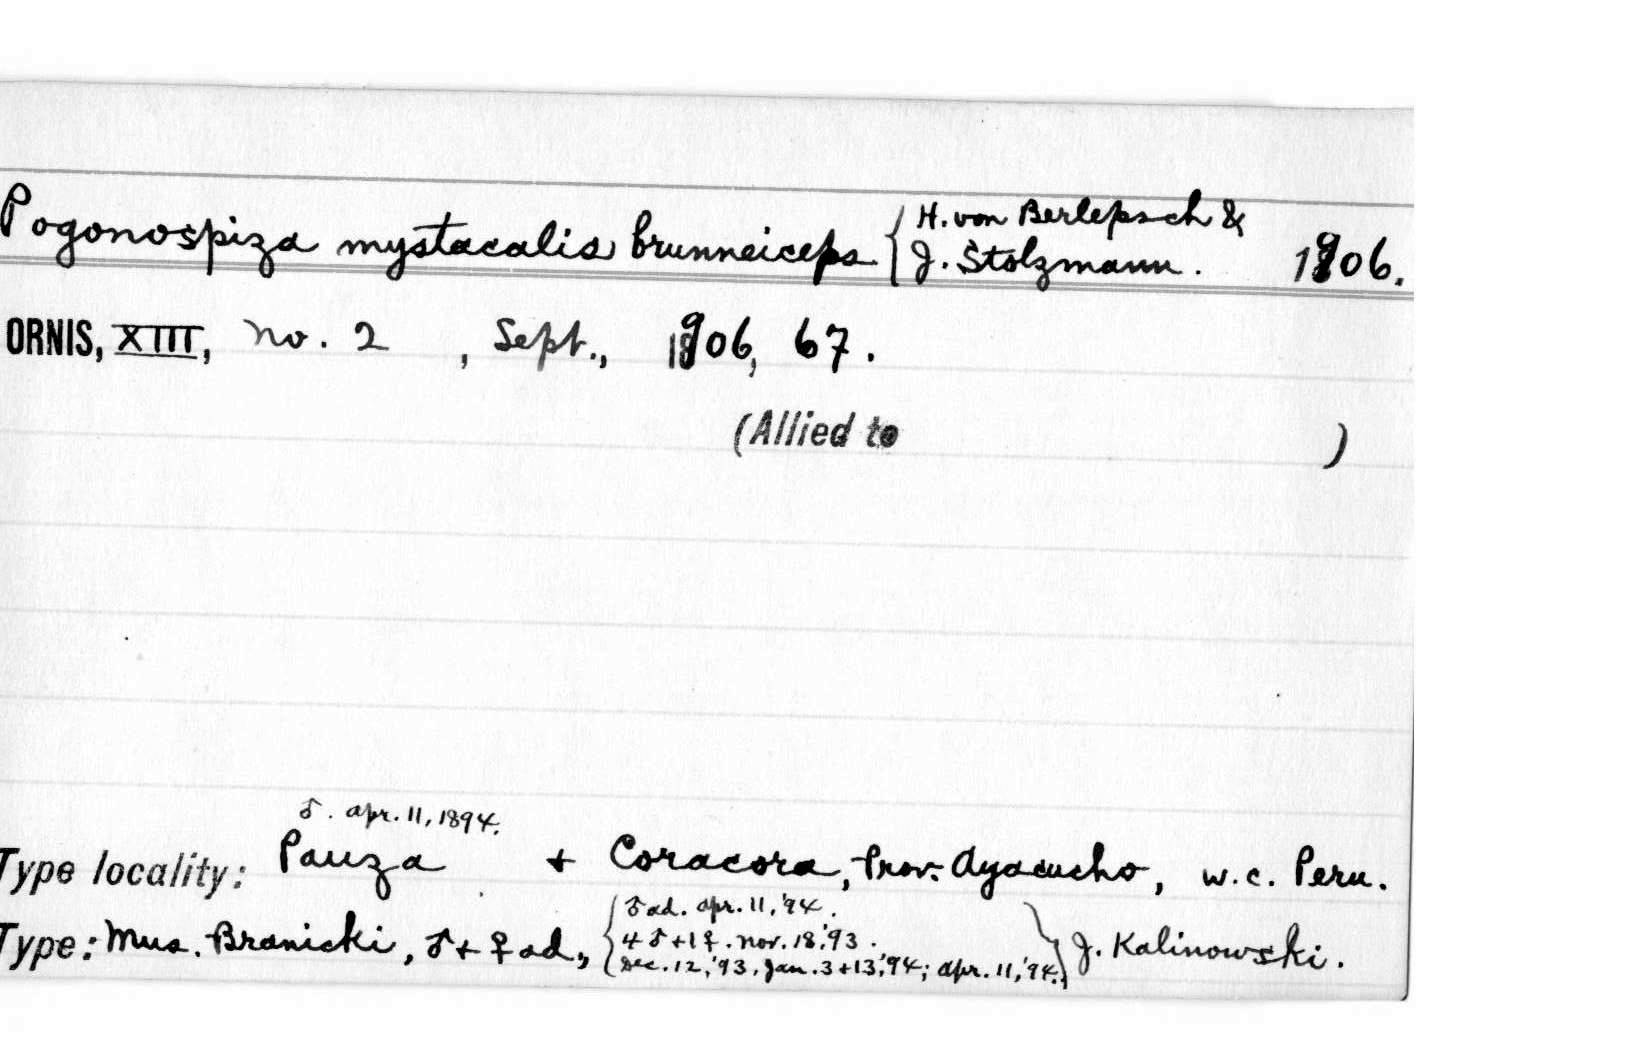 Pogonospiza mystacalis brunneiceps { H. von Berlepsch & J. Stolzmann. 1906.
ORNIS, XIII, no. 2 , Sept., 1906, 67.
(Allied to )
♂. Apr. 11, 1894.
Type locality: Pauza + Coracora, Prov. Ayacucho, w.c. Peru.
Type: Mus. Branicki, ♂ + ♀ ad., { ♂ ad. Apr. 11, '94.
4 ♂ + 1 ♀. Nov. 18, '93.
Dec. 12, '93, Jan. 3 + 13, '94; Apr. 11, '94. } J. Kalinowski.